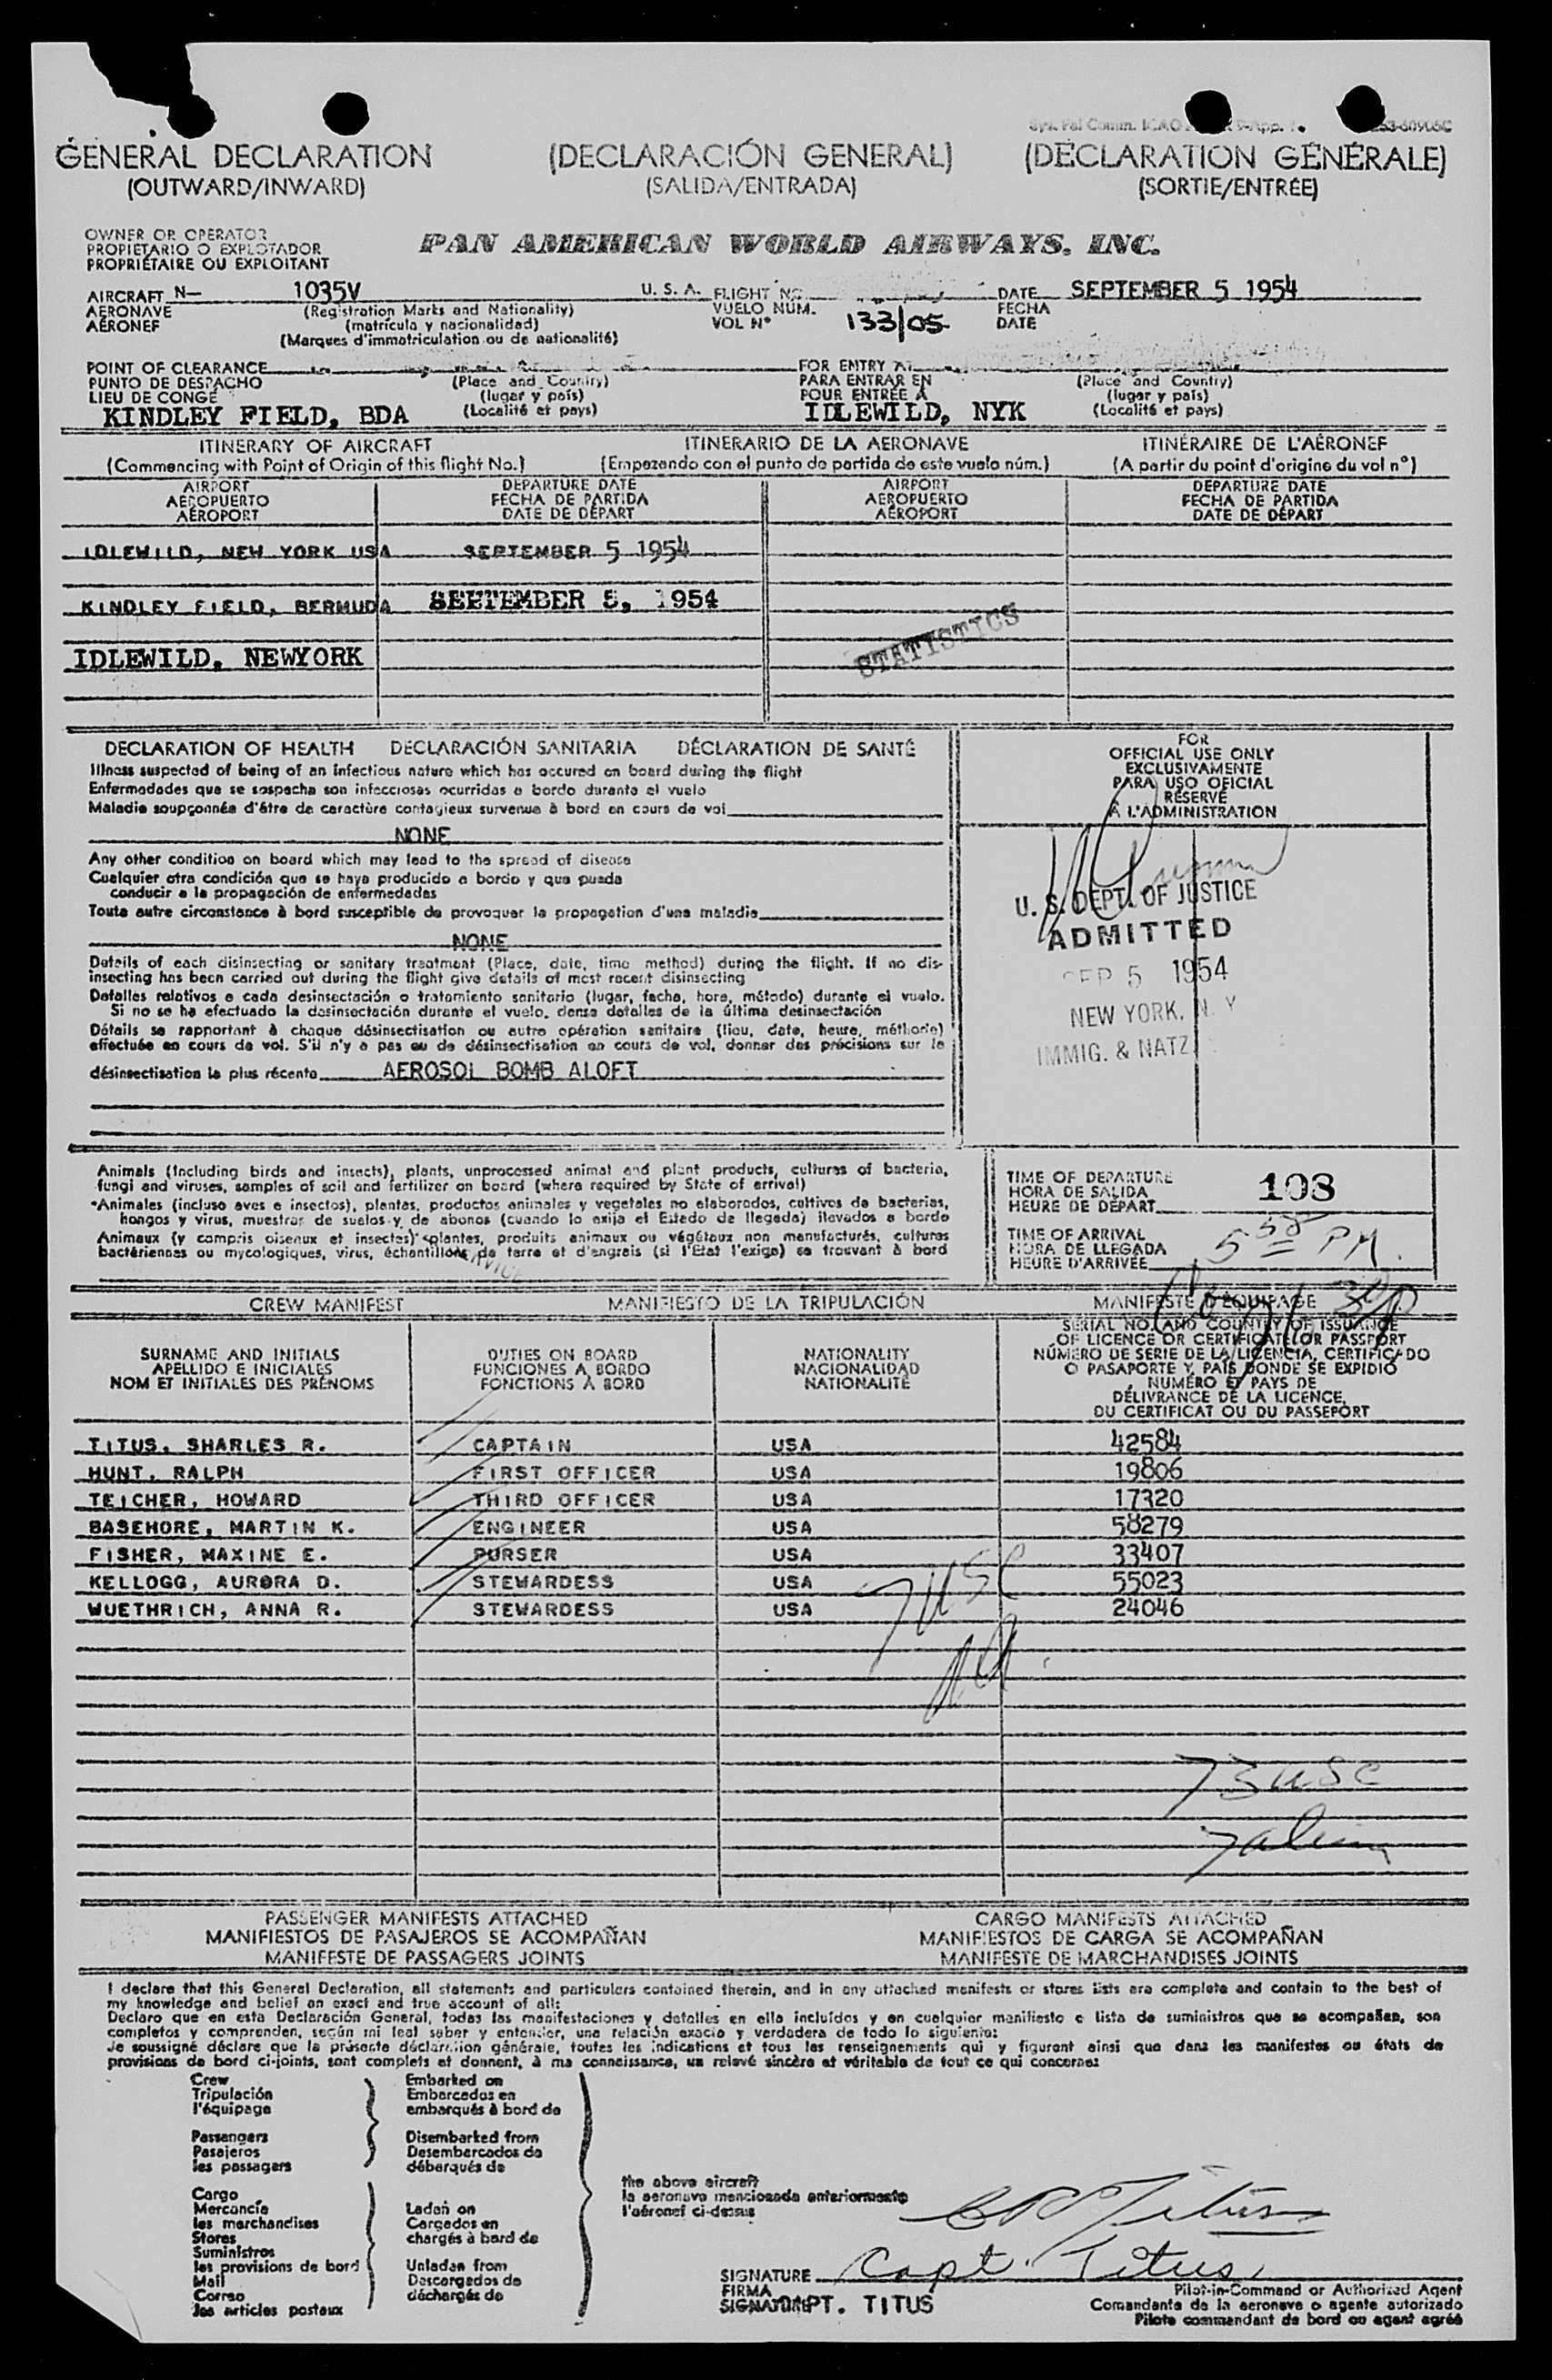 GENERAL DECLARATION (DECLARACIÓN GENERAL) (DÉCLARATION GÉNÉRALE)
(OUTWARD/INWARD) (SALIDA/ENTRADA) (SORTIE/ENTRÉE)
OWNER OR OPERATOR
PROPIETARIO O EXPLOTADOR
PROPRIÉTAIRE OU EXPLOITANT
PAN AMERICAN WORLD AIRWAYS, INC.
AIRCRAFT N— 1035V U. S. A. FLIGHT NO. DATE SEPTEMBER 5 1954
AERONAVE (Registration Marks and Nationality) VUELO NÚM. 133/05 FECHA
AÉRONEF (matrícula y nacionalidad) VOL N° DATE
(Marques d'immatriculation ou de nationalité)
POINT OF CLEARANCE FOR ENTRY AT
PUNTO DE DESPACHO (Place and Country) PARA ENTRAR EN (Place and Country)
LIEU DE CONGÉ (lugar y país) POUR ENTRÉE À (lugar y país)
KINDLEY FIELD, BDA (Localité et pays) IDLEWILD, NYK (Localité et pays)
ITINERARY OF AIRCRAFT ITINERARIO DE LA AERONAVE ITINÉRAIRE DE L'AÉRONEF
(Commencing with Point of Origin of this flight No.) (Empezando con el punto de partida de este vuelo núm.) (A partir du point d'origine du vol n°)
AIRPORT DEPARTURE DATE AIRPORT DEPARTURE DATE
AEROPUERTO FECHA DE PARTIDA AEROPUERTO FECHA DE PARTIDA
AÉROPORT DATE DE DÉPART AÉROPORT DATE DE DÉPART
IDLEWILD, NEW YORK USA SEPTEMBER 5 1954
KINDLEY FIELD, BERMUDA SEETEMBER 5, 1954
STATISTICS
IDLEWILD, NEWYORK
DECLARATION OF HEALTH DECLARACIÓN SANITARIA DÉCLARATION DE SANTÉ
Illness suspected of being of an infectious nature which has occured on board during the flight
Enfermedades que se sospecha son infecciosas ocurridas a bordo durante el vuelo
Maladie soupçonnée d'être de caractère contagieux survenue à bord en cours de vol
NONE
Any other condition on board which may lead to the spread of disease
Cualquier otra condición que se haya producido a bordo y que pueda
conducir a la propagación de enfermedades
Toute autre circonstance à bord susceptible de provoquer la propagation d'une maladie
NONE
Details of each disinsecting or sanitary treatment (Place, date, time method) during the flight. If no dis-
insecting has been carried out during the flight give details of most recent disinsecting
Detalles relativos a cada desinsectación o tratamiento sanitario (lugar, fecha, hora, método) durante el vuelo.
Si no se ha efectuado la desinsectación durante el vuelo, dense detalles de la última desinsectación
Détails se rapportant à chaque désinsectisation ou autre opération sanitaire (lieu, date, heure, méthode)
effectuée en cours de vol. S'il n'y a pas eu de désinsectisation en cours de vol, donner des précisions sur la
désinsectisation la plus récente AEROSOL BOMB ALOFT
FOR
OFFICIAL USE ONLY
EXCLUSIVAMENTE
PARA USO OFICIAL
RÉSERVÉ
À L'ADMINISTRATION
U. S. DEPT. OF JUSTICE
ADMITTED
SEP 5 1954
NEW YORK, N. Y
IMMIG. & NATZ
Animals (including birds and insects), plants, unprocessed animal and plant products, cultures of bacteria,
fungi and viruses, samples of soil and fertilizer on board (where required by State of arrival)
Animales (incluso aves e insectos), plantas, productos animales y vegetales no elaborados, cultivos de bacterias,
hongos y virus, muestras de suelos y de abonos (cuando lo exija el Estado de llegada) llevados a bordo
Animaux (y compris oiseaux et insectes) plantes, produits animaux ou végétaux non manufacturés, cultures
bactériennes ou mycologiques, virus, échantillons de terre et d'engrais (si l'État l'exige) se trouvant à bord
TIME OF DEPARTURE
HORA DE SALIDA
HEURE DE DÉPART 108
TIME OF ARRIVAL
HORA DE LLEGADA
HEURE D'ARRIVÉE 5 58 PM
CREW MANIFEST MANIFIESTO DE LA TRIPULACIÓN MANIFESTE D'ÉQUIPAGE
SURNAME AND INITIALS
APELLIDO E INICIALES
NOM ET INITIALES DES PRÉNOMS
DUTIES ON BOARD
FUNCIONES A BORDO
FONCTIONS À BORD
NATIONALITY
NACIONALIDAD
NATIONALITÉ
SERIAL NO. AND COUNTRY OF ISSUANCE
OF LICENCE OR CERTIFICATE OR PASSPORT
NÚMERO DE SERIE DE LA LICENCIA, CERTIFICADO
O PASAPORTE Y PAÍS DONDE SE EXPIDIÓ
NUMÉRO ET PAYS DE
DÉLIVRANCE DE LA LICENCE,
DU CERTIFICAT OU DU PASSEPORT
TITUS, SHARLES R. CAPTAIN USA 42584
HUNT, RALPH FIRST OFFICER USA 19806
TEICHER, HOWARD THIRD OFFICER USA 17320
BASEHORE, MARTIN K. ENGINEER USA 58279
FISHER, MAXINE E. PURSER USA 33407
KELLOGG, AURORA D. STEWARDESS USA 55023
WUETHRICH, ANNA R. STEWARDESS USA 24046
7 USC
73 USC
7 alien
PASSENGER MANIFESTS ATTACHED CARGO MANIFESTS ATTACHED
MANIFIESTOS DE PASAJEROS SE ACOMPAÑAN MANIFIESTOS DE CARGA SE ACOMPAÑAN
MANIFESTE DE PASSAGERS JOINTS MANIFESTE DE MARCHANDISES JOINTS
I declare that this General Declaration, all statements and particulars contained therein, and in any attached manifests or stores lists are complete and contain to the best of
my knowledge and belief an exact and true account of all:
Declaro que en esta Declaración General, todas las manifestaciones y detalles en ella incluídos y en cualquier manifiesto o lista de suministros que se acompañan, son
completos y comprenden, según mi leal saber y entender, una relación exacta y verdadera de todo lo siguiente:
Je soussigné déclare que la présente déclaration générale, toutes les indications et tous les renseignements qui y figurent ainsi que dans les manifestes ou états de
provisions de bord ci-joints, sont complets et donnent, à ma connaissance, un relevé sincère et véritable de tout ce qui concerne:
Crew Embarked on
Tripulación Embarcados en
l'équipage embarqués à bord de
Passengers Disembarked from
Pasajeros Desembarcados de
les passagers débarqués de
Cargo
Mercancía Laden on
les marchandises Cargados en
Stores chargés à bord de
Suministros
les provisions de bord Unladen from
Mail Descargados de
Correo déchargés de
les articles postaux
the above aircraft
la aeronave mencionada anteriormente
l'aéronef ci-dessus
CR Titus
SIGNATURE Capt. Titus
FIRMA
SIGNATURE CAPT. TITUS
Pilot-in-Command or Authorized Agent
Comandante de la aeronave o agente autorizado
Pilote commandant de bord ou agent agréé